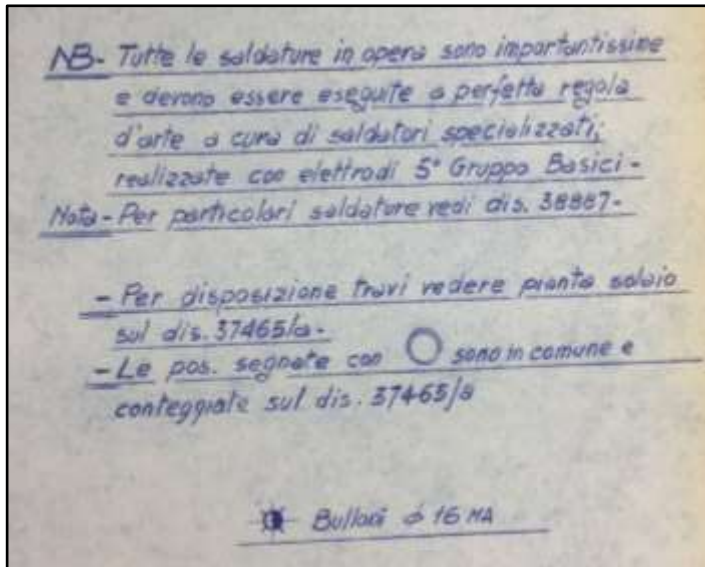 NB- Tutte le saldature in opera sono importantissime
e devono essere eseguite a perfetta regola
d'arte a cura di saldatori specializzati;
realizzate con elettrodi 5° Gruppo Basici-
Nota- Per particolari saldature vedi dis. 38887-
- Per disposizione travi vedere pianta solaio
sul dis. 37465/a-
- Le pos. segnate con O sono in comune e
conteggiate sul dis. 37465/a
Bulloni ϕ 16 MA